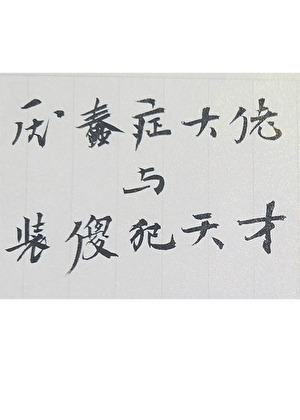 厌蠢症大佬
与
装傻犯天才